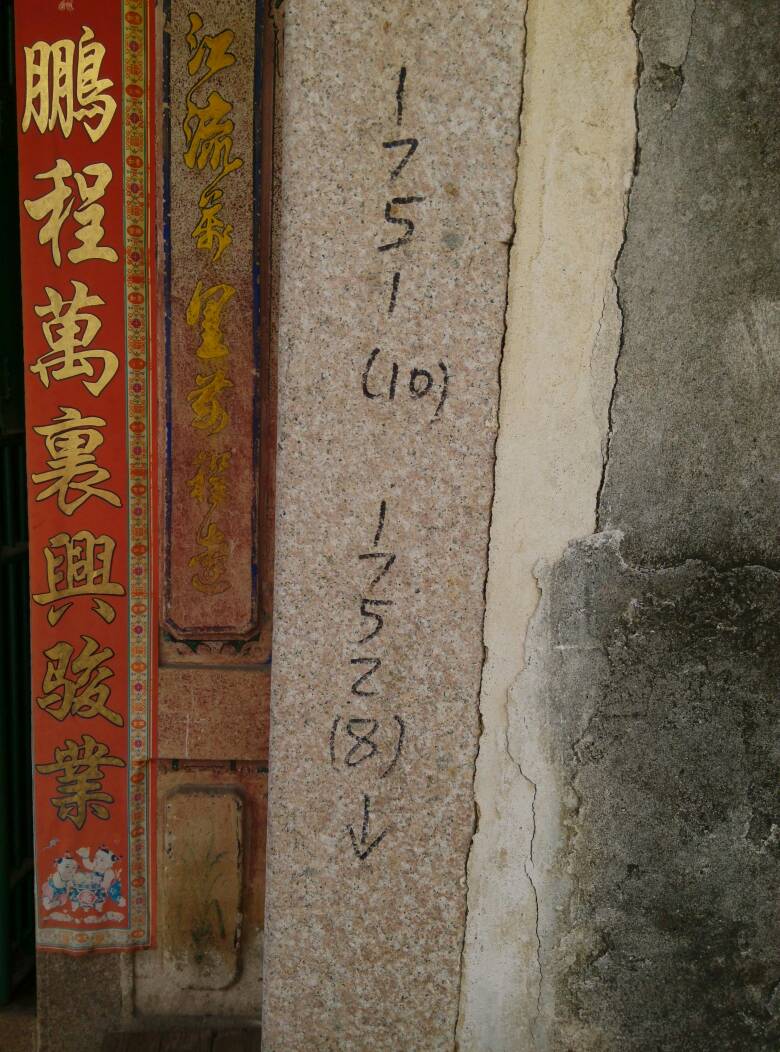 鵬程萬裏興駿業
江流萬里前程遠
1751
(10)
1752
(8)
↓